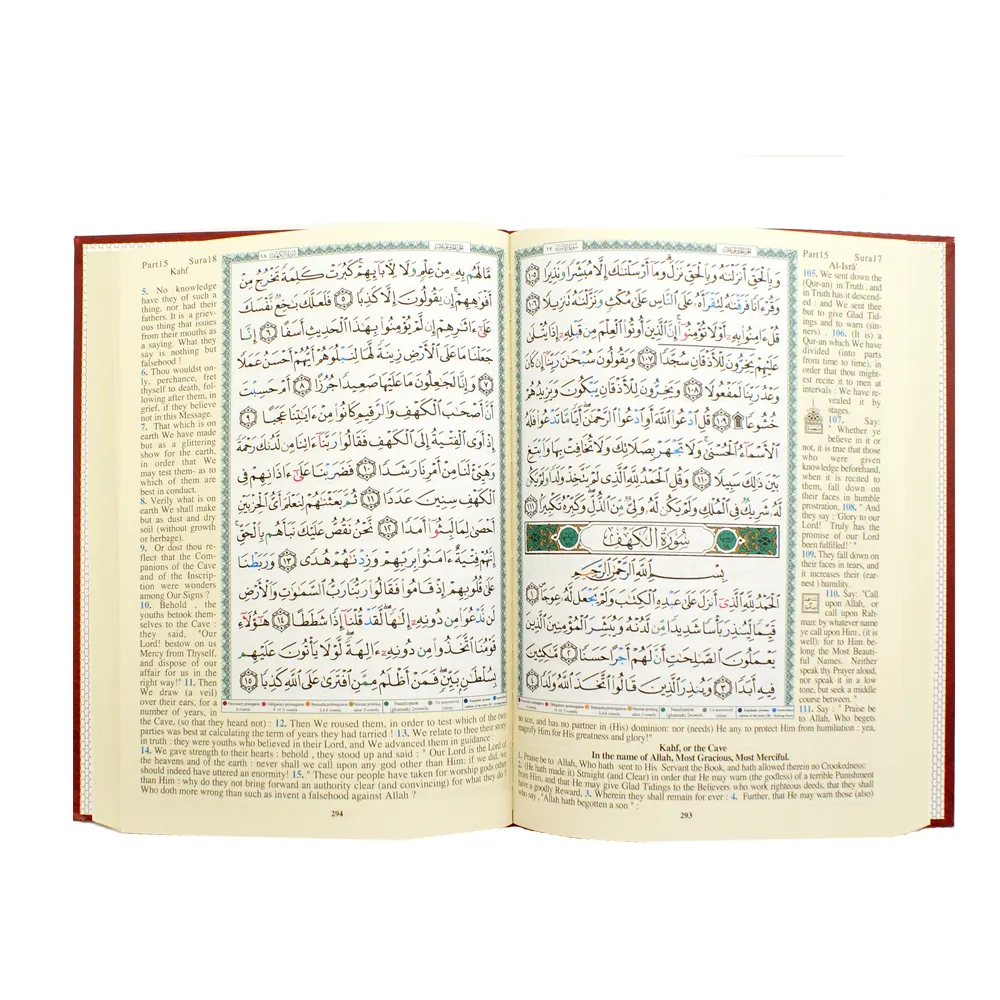 وَبِٱلْحَقِّ أَنزَلْنَٰهُ وَبِٱلْحَقِّ نَزَلَ ۗ وَمَآ أَرْسَلْنَٰكَ إِلَّا مُبَشِّرًا وَنَذِيرًا ١٠٥
وَقُرْءَانًا فَرَقْنَٰهُ لِتَقْرَأَهُۥ عَلَى ٱلنَّاسِ عَلَىٰ مُكْثٍ وَنَزَّلْنَٰهُ تَنزِيلًا ١٠٦
قُلْ ءَامِنُوا۟ بِهِۦٓ أَوْ لَا تُؤْمِنُوٓا۟ ۚ إِنَّ ٱلَّذِينَ أُوتُوا۟ ٱلْعِلْمَ مِن قَبْلِهِۦٓ إِذَا يُتْلَىٰ
عَلَيْهِمْ يَخِرُّونَ لِلْأَذْقَانِ سُجَّدًا ١٠٧ وَيَقُولُونَ سُبْحَٰنَ رَبِّنَآ إِن كَانَ
وَعْدُ رَبِّنَا لَمَفْعُولًا ١٠٨ وَيَخِرُّونَ لِلْأَذْقَانِ يَبْكُونَ وَيَزِيدُهُمْ
خُشُوعًا ۩ ١٠٩ قُلِ ٱدْعُوا۟ ٱللَّهَ أَوِ ٱدْعُوا۟ ٱلرَّحْمَٰنَ ۖ أَيًّا مَّا تَدْعُوا۟ فَلَهُ
ٱلْأَسْمَآءُ ٱلْحُسْنَىٰ ۚ وَلَا تَجْهَرْ بِصَلَاتِكَ وَلَا تُخَافِتْ بِهَا وَٱبْتَغِ
بَيْنَ ذَٰلِكَ سَبِيلًا ١١٠ وَقُلِ ٱلْحَمْدُ لِلَّهِ ٱلَّذِى لَمْ يَتَّخِذْ وَلَدًا وَلَمْ يَكُن
لَّهُۥ شَرِيكٌ فِى ٱلْمُلْكِ وَلَمْ يَكُن لَّهُۥ وَلِىٌّ مِّنَ ٱلذُّلِّ ۖ وَكَبِّرْهُ تَكْبِيرًۢا ١١١
سُورَةُ الكَهْفِ
بِسْمِ ٱللَّهِ ٱلرَّحْمَٰنِ ٱلرَّحِيمِ
ٱلْحَمْدُ لِلَّهِ ٱلَّذِىٓ أَنزَلَ عَلَىٰ عَبْدِهِ ٱلْكِتَٰبَ وَلَمْ يَجْعَل لَّهُۥ عِوَجَا ۜ ١
قَيِّمًا لِّيُنذِرَ بَأْسًا شَدِيدًا مِّن لَّدُنْهُ وَيُبَشِّرَ ٱلْمُؤْمِنِينَ ٱلَّذِينَ
يَعْمَلُونَ ٱلصَّٰلِحَٰتِ أَنَّ لَهُمْ أَجْرًا حَسَنًا ٢ مَّٰكِثِينَ
فِيهِ أَبَدًا ٣ وَيُنذِرَ ٱلَّذِينَ قَالُوا۟ ٱتَّخَذَ ٱللَّهُ وَلَدًا ٤
Part15 Sura17
Al-Isrâ'
105. We sent down the
(Qur-an) in Truth , and
in Truth has it descend-
ed : and We sent thee
but to give Glad Tid-
ings and to warn (sin-
ners) . 106. (It is) a
Qur-an which We have
divided (into parts
from time to time), in
order that thou might-
est recite it to men at
intervals : We have re-
vealed it by
stages.
107. Say:
" Whether ye
believe in it or
not, it is true that those
who were given
knowledge beforehand,
when it is recited to
them, fall down on
their faces in humble
prostration. 108. " And
they say : 'Glory to our
Lord! Truly has the
promise of our Lord
been fulfilled!' "
109. They fall down on
their faces in tears, and
it increases their (ear-
nest ) humility.
110. Say: "Call
upon Allah, or
call upon Rah-
man: by whatever name
ye call upon Him , (it is
well): for to Him be-
long the Most Beauti-
ful Names. Neither
speak thy Prayer aloud,
nor speak it in a low
tone, but seek a middle
course between. "
111. Say : " Praise be
to Allah, Who begets
no son, and has no partner in (His) dominion: nor (needs) He any to protect Him from humiliation : yea,
magnify Him for His greatness and glory!"
Kahf, or the Cave
In the name of Allah, Most Gracious, Most Merciful.
1. Praise be to Allah, Who hath sent to His Servant the Book, and hath allowed therein no Crookedness:
2. (He hath made it) Straight (and Clear) in order that He may warn (the godless) of a terrible Punishment
from Him, and that He may give Glad Tidings to the Believers who work righteous deeds, that they shall
have a goodly Reward, 3. Wherein they shall remain for ever : 4. Further, that He may warn those (also)
who say , "Allah hath begotten a son " :
293
Part15 Sura18
Kahf
مَّا لَهُم بِهِۦ مِنْ عِلْمٍ وَلَا لِـَٔابَآئِهِمْ ۚ كَبُرَتْ كَلِمَةً تَخْرُجُ مِنْ
أَفْوَٰهِهِمْ ۚ إِن يَقُولُونَ إِلَّا كَذِبًا ٥ فَلَعَلَّكَ بَٰخِعٌ نَّفْسَكَ
عَلَىٰٓ ءَاثَٰرِهِمْ إِن لَّمْ يُؤْمِنُوا۟ بِهَٰذَا ٱلْحَدِيثِ أَسَفًا ٦ إِنَّا
جَعَلْنَا مَا عَلَى ٱلْأَرْضِ زِينَةً لَّهَا لِنَبْلُوَهُمْ أَيُّهُمْ أَحْسَنُ عَمَلًا
٧ وَإِنَّا لَجَٰعِلُونَ مَا عَلَيْهَا صَعِيدًا جُرُزًا ٨ أَمْ حَسِبْتَ
أَنَّ أَصْحَٰبَ ٱلْكَهْفِ وَٱلرَّقِيمِ كَانُوا۟ مِنْ ءَايَٰتِنَا عَجَبًا ٩
إِذْ أَوَى ٱلْفِتْيَةُ إِلَى ٱلْكَهْفِ فَقَالُوا۟ رَبَّنَآ ءَاتِنَا مِن لَّدُنكَ رَحْمَةً
وَهَيِّئْ لَنَا مِنْ أَمْرِنَا رَشَدًا ١٠ فَضَرَبْنَا عَلَىٰٓ ءَاذَانِهِمْ فِى
ٱلْكَهْفِ سِنِينَ عَدَدًا ١١ ثُمَّ بَعَثْنَٰهُمْ لِنَعْلَمَ أَىُّ ٱلْحِزْبَيْنِ
أَحْصَىٰ لِمَا لَبِثُوٓا۟ أَمَدًا ١٢ نَّحْنُ نَقُصُّ عَلَيْكَ نَبَأَهُم بِٱلْحَقِّ ۚ
إِنَّهُمْ فِتْيَةٌ ءَامَنُوا۟ بِرَبِّهِمْ وَزِدْنَٰهُمْ هُدًى ١٣ وَرَبَطْنَا
عَلَىٰ قُلُوبِهِمْ إِذْ قَامُوا۟ فَقَالُوا۟ رَبُّنَا رَبُّ ٱلسَّمَٰوَٰتِ وَٱلْأَرْضِ
لَن نَّدْعُوَا۟ مِن دُونِهِۦٓ إِلَٰهًا ۖ لَّقَدْ قُلْنَآ إِذًا شَطَطًا ١٤ هَٰٓؤُلَآءِ
قَوْمُنَا ٱتَّخَذُوا۟ مِن دُونِهِۦٓ ءَالِهَةً ۖ لَّوْلَا يَأْتُونَ عَلَيْهِم
بِسُلْطَٰنٍۭ بَيِّنٍ ۖ فَمَنْ أَظْلَمُ مِمَّنِ ٱفْتَرَىٰ عَلَى ٱللَّهِ كَذِبًا ١٥
5. No knowledge
have they of such a
thing, nor had their
fathers. It is a griev-
ous thing that issues
from their mouths as
a saying. What they
say is nothing but
falsehood !
6. Thou wouldst on-
ly, perchance, fret
thyself to death, fol-
lowing after them, in
grief, if they believe
not in this Message.
7. That which is on
earth We have made
but as a glittering
show for the earth,
in order that We
may test them- as to
which of them are
best in conduct.
8. Verily what is on
earth We shall make
but as dust and dry
soil (without growth
or herbage).
9. Or dost thou re-
flect that the Com-
panions of the Cave
and of the Inscrip-
tion were wonders
among Our Signs ?
10. Behold , the
youths betook them-
selves to the Cave :
they said, "Our
Lord! bestow on us
Mercy from Thyself,
and dispose of our
affair for us in the
right way!" 11. Then
We draw (a veil)
over their ears, for a
number of years, in
the Cave, (so that they heard not) : 12. Then We roused them, in order to test which of the two
parties was best at calculating the term of years they had tarried ! 13. We relate to thee their story
in truth : they were youths who believed in their Lord, and We advanced them in guidance :
14. We gave strength to their hearts : behold , they stood up and said : " Our Lord is the Lord of
the heavens and of the earth : never shall we call upon any god other than Him: if we did, we
should indeed have uttered an enormity! 15. " These our people have taken for worship gods other
than Him : why do they not bring forward an authority clear (and convincing) for what they do ?
Who doth more wrong than such as invent a falsehood against Allah ?
294